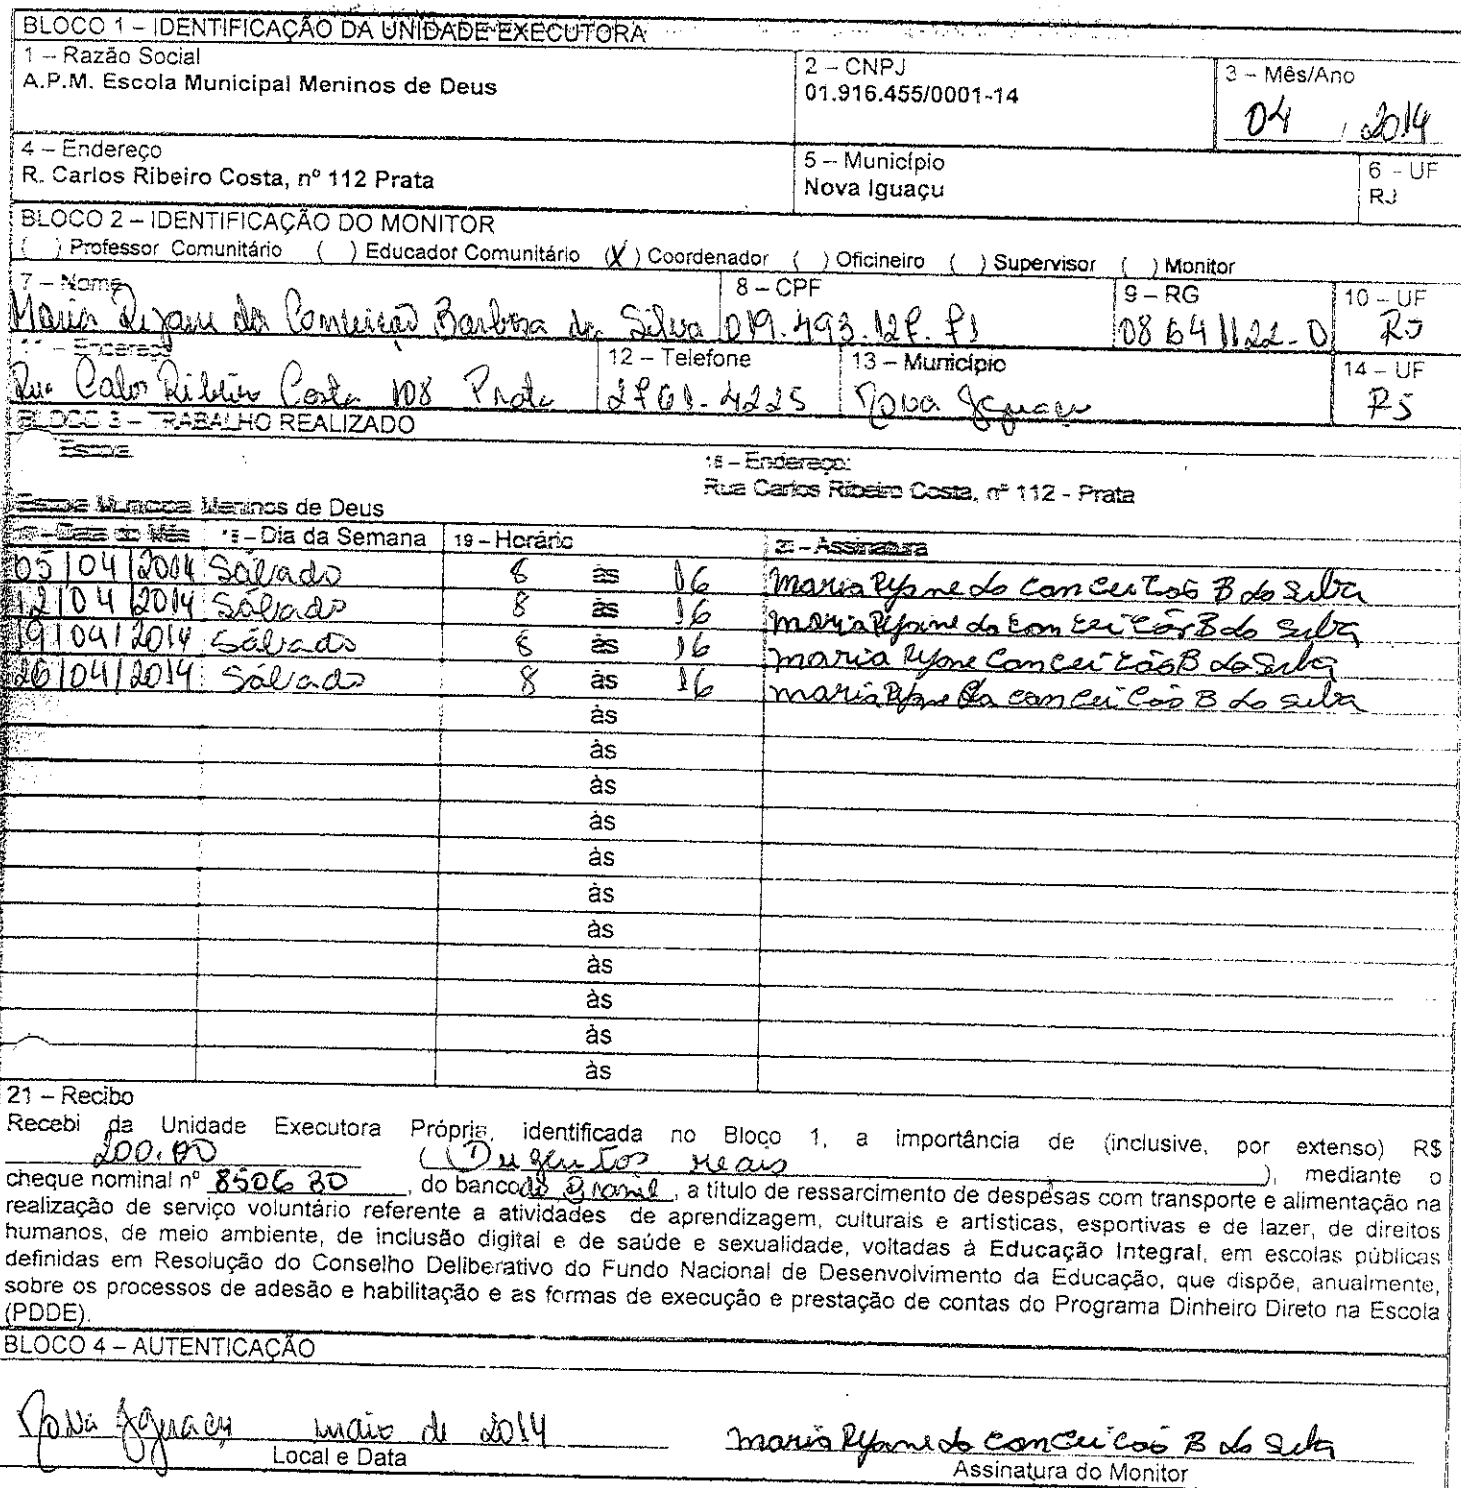 BLOCO 1 – IDENTIFICAÇÃO DA UNIDADE EXECUTORA
1 – Razão Social
A.P.M. Escola Municipal Meninos de Deus
2 – CNPJ
01.916.455/0001-14
3 – Mês/Ano
04 / 2014
4 – Endereço
R. Carlos Ribeiro Costa, nº 112 Prata
5 – Município
Nova Iguaçu
6 – UF
RJ
BLOCO 2 – IDENTIFICAÇÃO DO MONITOR
( ) Professor Comunitário ( ) Educador Comunitário (X) Coordenador ( ) Oficineiro ( ) Supervisor ( ) Monitor
7 – Nome
Maria Rejane da Conceição Barbosa da Silva
8 – CPF
019.493.127.71
9 – RG
08641122-0
10 – UF
RJ
11 – Endereço
Rua Calos Ribeiro Costa 108 Prata
12 – Telefone
2761-4225
13 – Município
Nova Iguaçu
14 – UF
RJ
BLOCO 3 – TRABALHO REALIZADO
Escola
Escola Municipal Meninos de Deus
16 – Endereço:
Rua Carlos Ribeiro Costa, nº 112 - Prata
Data do Mês
18 – Dia da Semana
19 – Horário
20 – Assinatura
05/04/2014 Sábado 8 às 16 Maria Rejane da Conceição B da Silva
12/04/2014 Sábado 8 às 16 Maria Rejane da Conceição B da Silva
19/04/2014 Sábado 8 às 16 Maria Rejane Conceição B da Silva
26/04/2014 Sábado 8 às 16 Maria Rejane da Conceição B da Silva
às
às
às
às
às
às
às
às
às
às
às
21 – Recibo
Recebi da Unidade Executora Própria, identificada no Bloco 1, a importância de (inclusive, por extenso) R$
200,00 (Duzentos reais), mediante o
cheque nominal nº 850630, do banco do Brasil, a titulo de ressarcimento de despesas com transporte e alimentação na
realização de serviço voluntário referente a atividades de aprendizagem, culturais e artísticas, esportivas e de lazer, de direitos
humanos, de meio ambiente, de inclusão digital e de saúde e sexualidade, voltadas à Educação Integral, em escolas públicas
definidas em Resolução do Conselho Deliberativo do Fundo Nacional de Desenvolvimento da Educação, que dispõe, anualmente,
sobre os processos de adesão e habilitação e as formas de execução e prestação de contas do Programa Dinheiro Direto na Escola
(PDDE).
BLOCO 4 – AUTENTICAÇÃO
Nova Iguaçu maio de 2014
Local e Data
Maria Rejane da Conceição B da Silva
Assinatura do Monitor